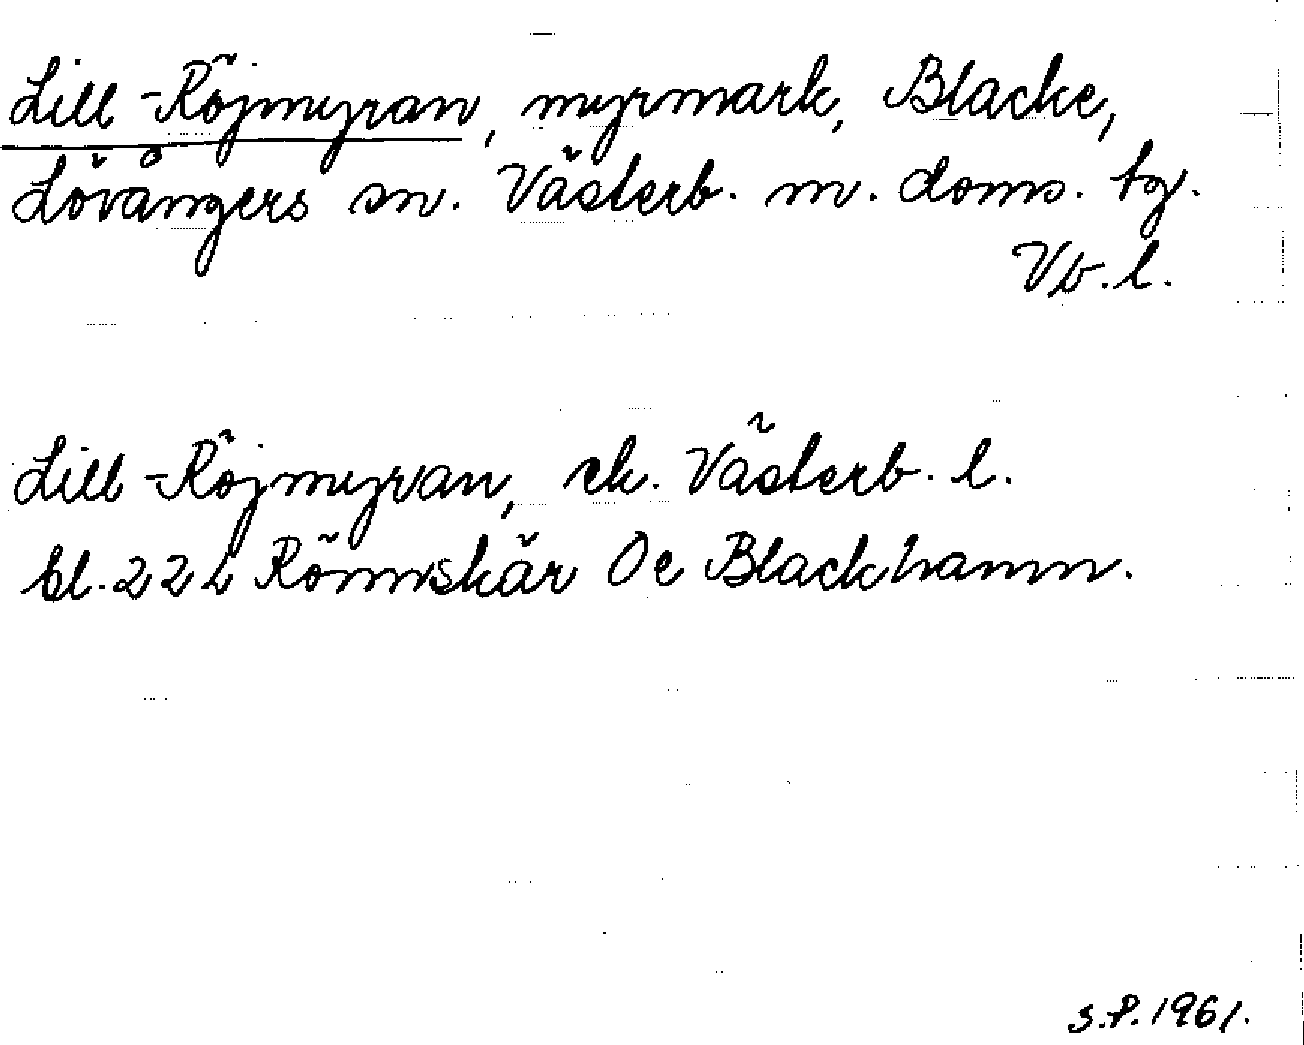 Lill-Röjmyran, myrmark, Blacke,
Lövångers sn. Västerb. m. doms. tg.
Vb. l.
Lill-Röjmyran, ek. Västerb. l.
bl. 22 L Rönnskär Oe Blackhamn.
S.P. 1961.